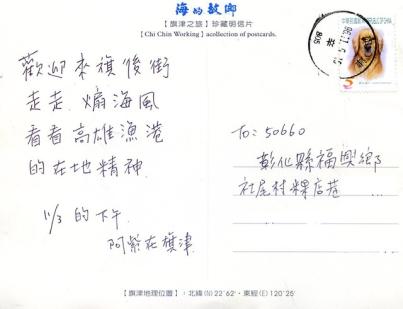 海的故鄉
【旗津之旅】珍藏明信片
【Chi Chin Working】acollection of postcards.
歡迎來旗後街
走走 煽海風
看看高雄漁港
的在地精神
11/3 的下午
阿紫在旗津
TO: 50660
彰化縣福興鄉
社尾村粿店巷 …
【旗津地理位置】：北緯(N) 22°62'・東經(E) 120°25'